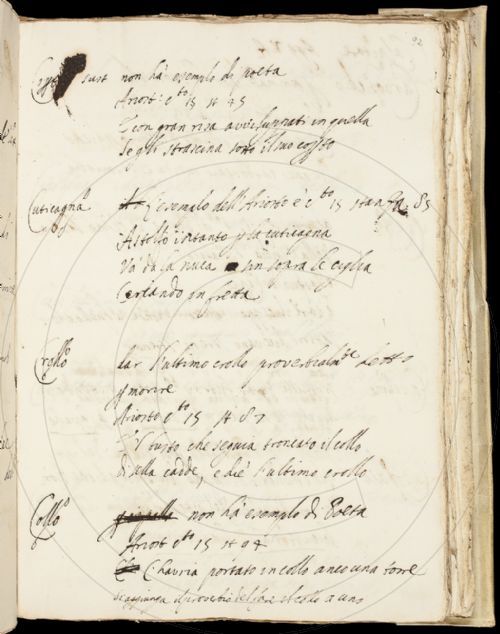 92
sust non ha esempio di poeta
Ariost c.to 15 st 45
E con gran risa avviluppati in quella
Se gli strascina sotto il suo
Cuticagna
l'esempio dell'Ariosto è c.to 15 stanza 85
Astolfo intanto per la cuticagna
Va da la nuca fin sopra le ciglia
Cercando in fretta
Crollo
dar l'ultimo crollo proverbialm.te detto
p morire
Ariosto c.to 15 st 87
Il busto che seguia troncato il collo
Di sella cadde, e diè l'ultimo crollo
Collo
non ha esempio di Poeta
Ariost c.to 15 st 94
C'havria portato in collo anco una torre
il proverbio il collo a uno